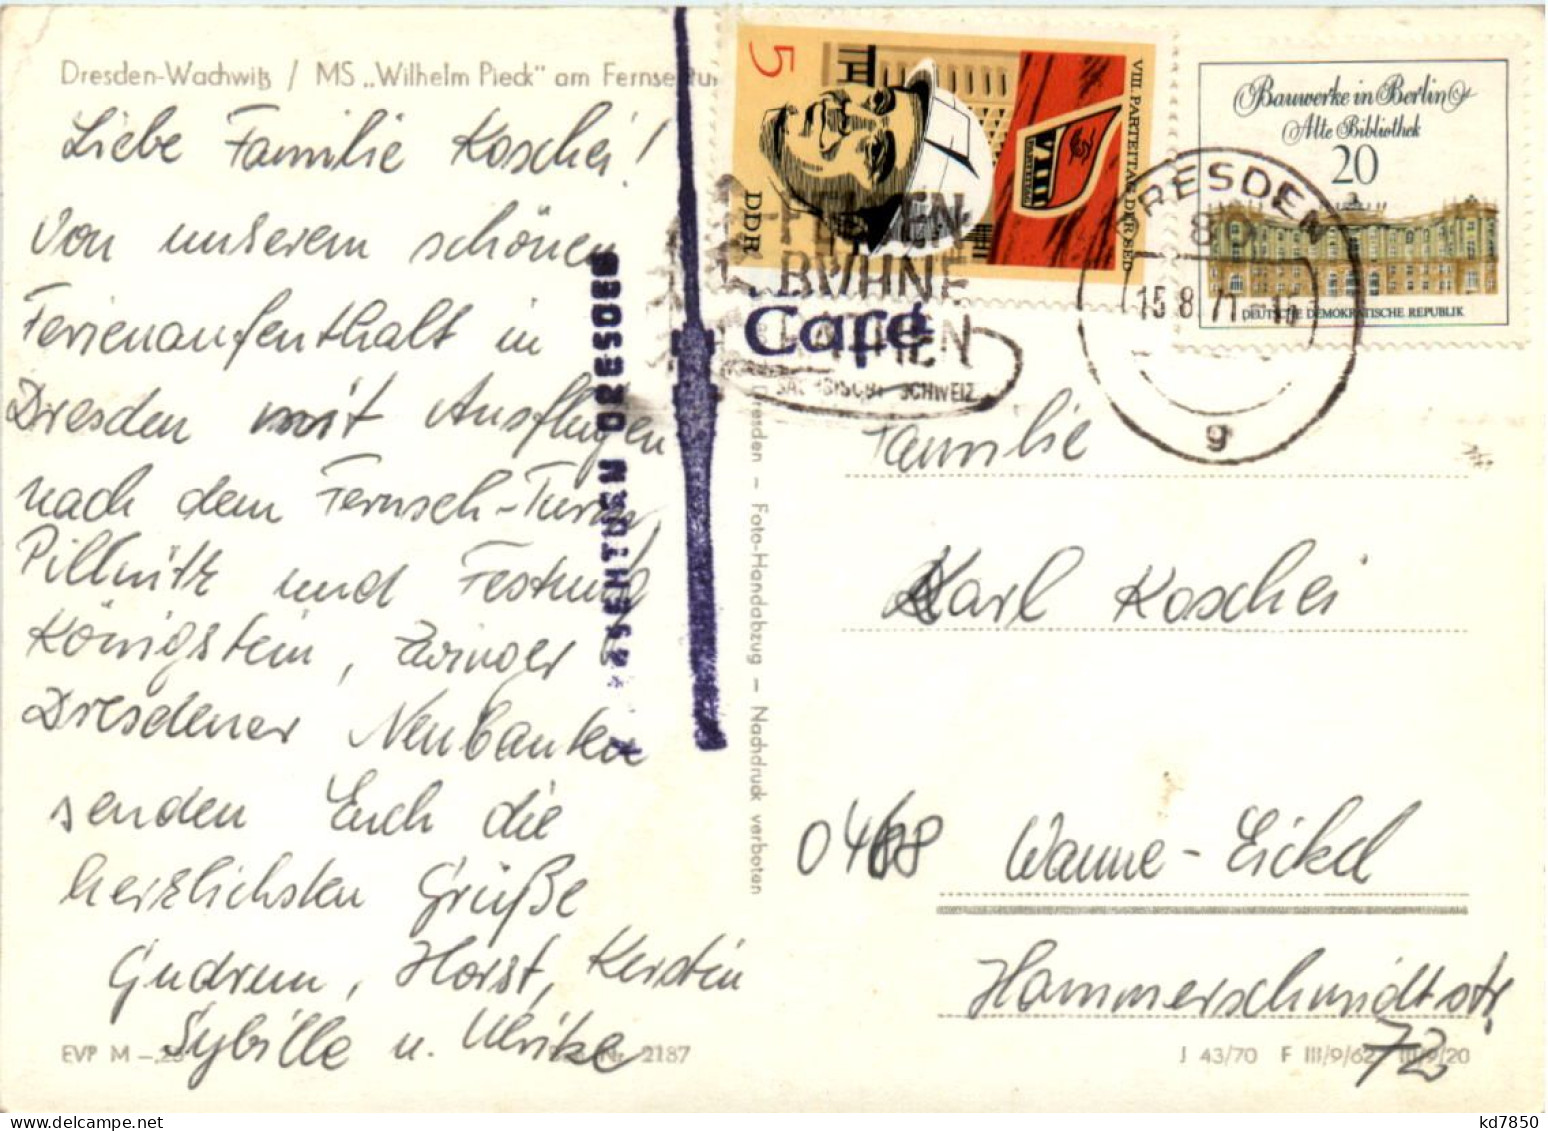 Dresden-Wachwitz / MS „Wilhelm Pieck“ am Fernsehtur
Liebe Familie Koschei!
Von unserem schönen
Ferienaufenthalt in
Dresden mit Ausflügen
nach dem Fernseh-Turm,
Pillnitz und Festung
Königstein, Zwinger
Dresdener Neubauten
senden Euch die
herzlichsten Grüße
Gudrun, Horst, Kerstin
Sybille u. Ulrike
EVP M –,25
2187
FERNSEHTURM DRESDEN
Café
Dresden – Foto-Handabzug – Nachdruck verboten
5
VIII. PARTEITAG DER SED
VIII
DDR
FELSEN
BÜHNE
RATHEN
SÄCHSISCHE SCHWEIZ
Bauwerke in Berlin
Alte Bibliothek
20
DEUTSCHE DEMOKRATISCHE REPUBLIK
DRESDEN
15.8.71-15
g
Familie
Karl Koschei
0468 Wanne-Eickel
Hammerschmidtstr.
72
J 43/70 F III/9/62 III/9/20
kd7850